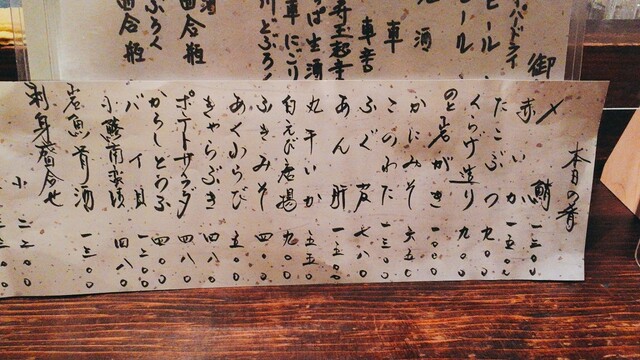 本日の肴
〆鯖 一三〇〇
赤いか 一五〇〇
たこぶつ 九〇〇
くらげ造り 九〇〇
のと岩がき 一〇〇〇
かにみそ 六五〇
このわた 一三〇〇
ふぐ皮 七八〇
あん肝 一五〇〇
丸干いか 五五〇
白えび唐揚 九〇〇
ふきみそ 四〇〇
あくわらび 五〇〇
きゃらぶき 四八〇
ポテトサラダ 四八〇
からしとうふ 四〇〇
バイ貝 一二〇〇
小鯵南蛮漬 四八〇
岩魚骨酒 一三〇〇
刺身盛合せ
小 二二〇〇
御
パードライ
ビール
ビール
酒
車
車
にごり
生酒
どぶろく
四合瓶
どぶろく
四合瓶